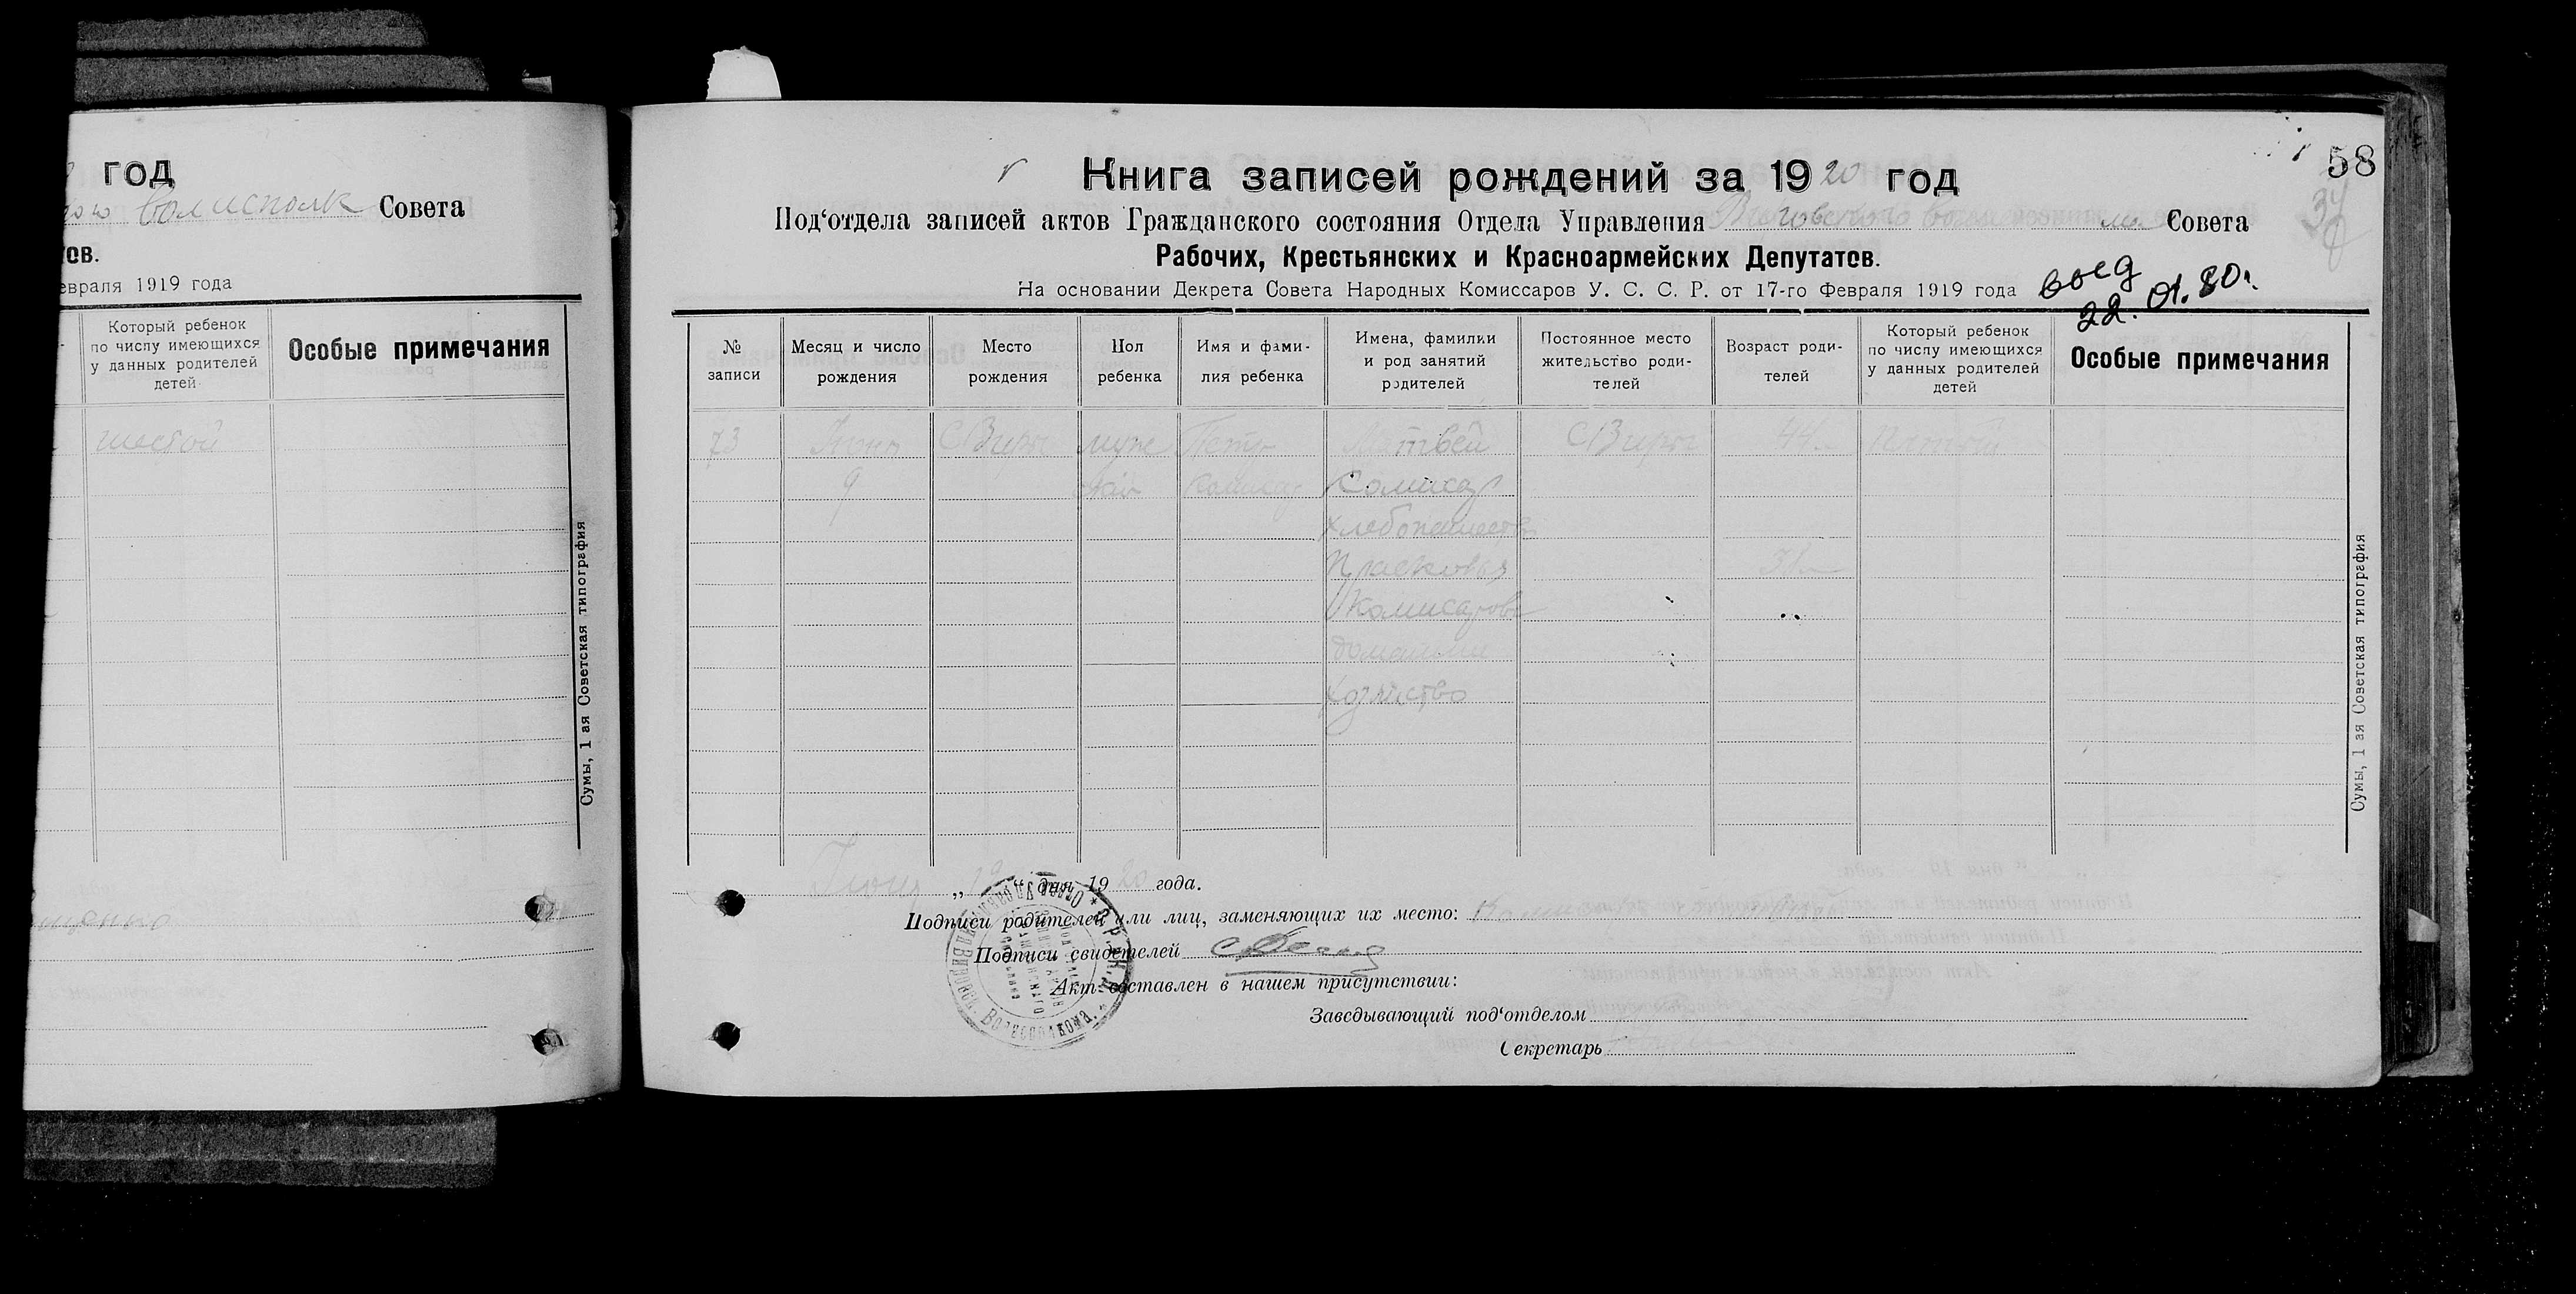 год
волисполк Совета
ов.
евраля 1919 года
Который ребенок
по числу имеющихся
у данных родителей
детей
Особые примечания
шестой
Сумы, 1 ая Советская типография
58
34
Книга записей рождений за 1920 год
Под‘отдела записей актов Гражданского состояния Отдела Управления Совета
Рабочих, Крестьянских и Красноармейских Депутатов.
На основании Декрета Совета Народных Комиссаров У. С. С. Р. от 17-го Февраля 1919 года
выд
22. 01. 80г.
№
записи
Месяц и число
рождения
Место
рождения
Пол
ребенка
Имя и фами-
лия ребенка
Имена, фамилии
и род занятий
родителей
Постоянное место
жительство роди-
телей
Возраст роди-
телей
Который ребенок
по числу имеющихся
у данных родителей
детей
Особые примечания
73 С Виры муж Петр Матвей С Виры 44 пятый
9 Комисар Комисар
хлебопашество
Прасковья 31
Комисарова
домашни
хозяйство
Сумы, 1 ая Советская типография
„ “ дня 1920 года.
Подписи родителей или лиц, заменяющих их место:
Подписи свидетелей
Акт составлен в нашем присутствии:
Заведывающий под‘отделом
Секретарь